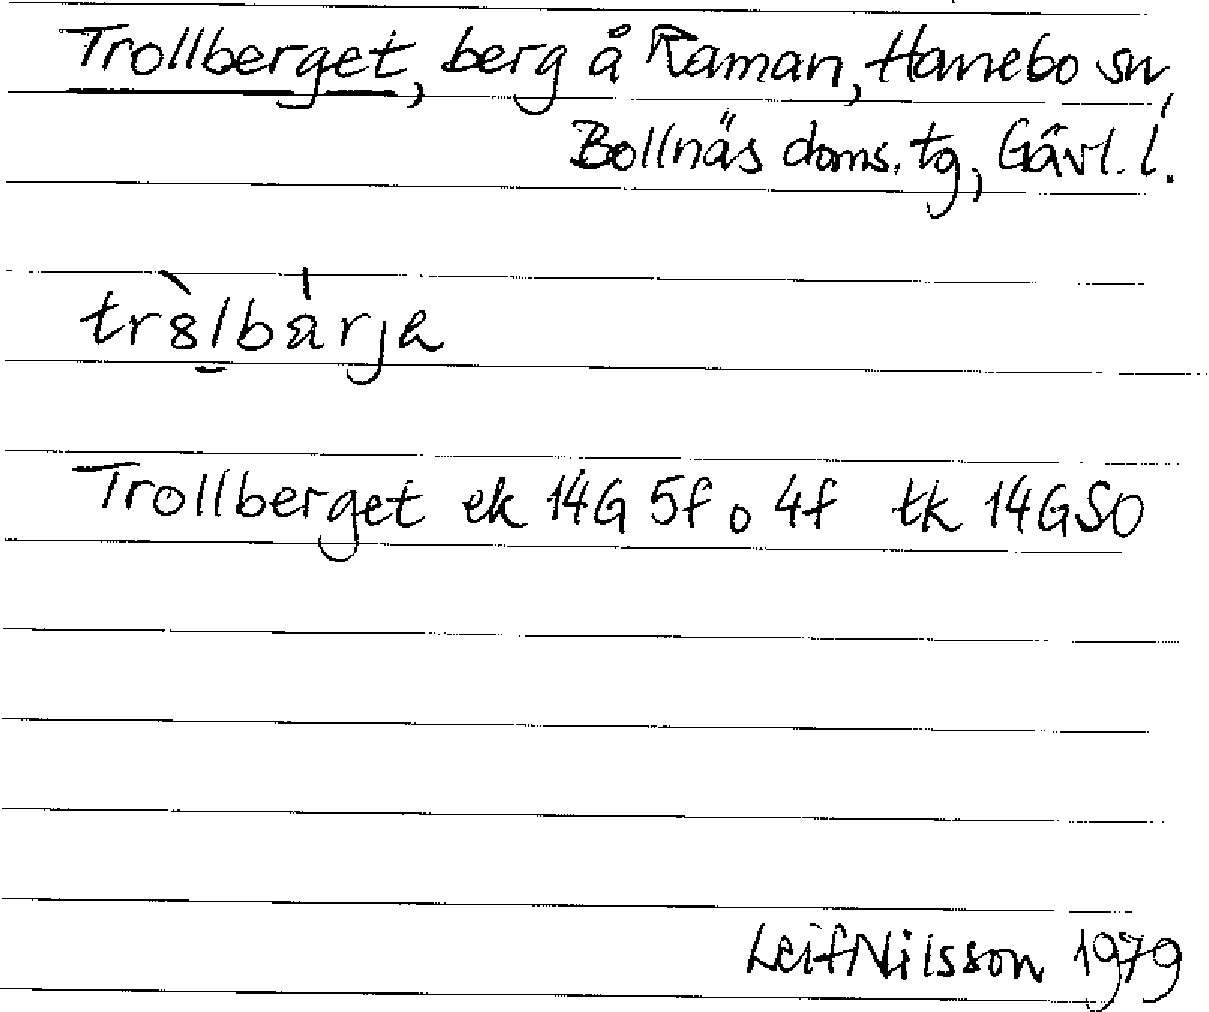 Trollberget, berg å Raman, Hanebo sn,
Bollnäs doms. tg, Gävl. l.
Trollberget ek 14G 5f o 4f tk 14GSO
Leif Nilsson 1979